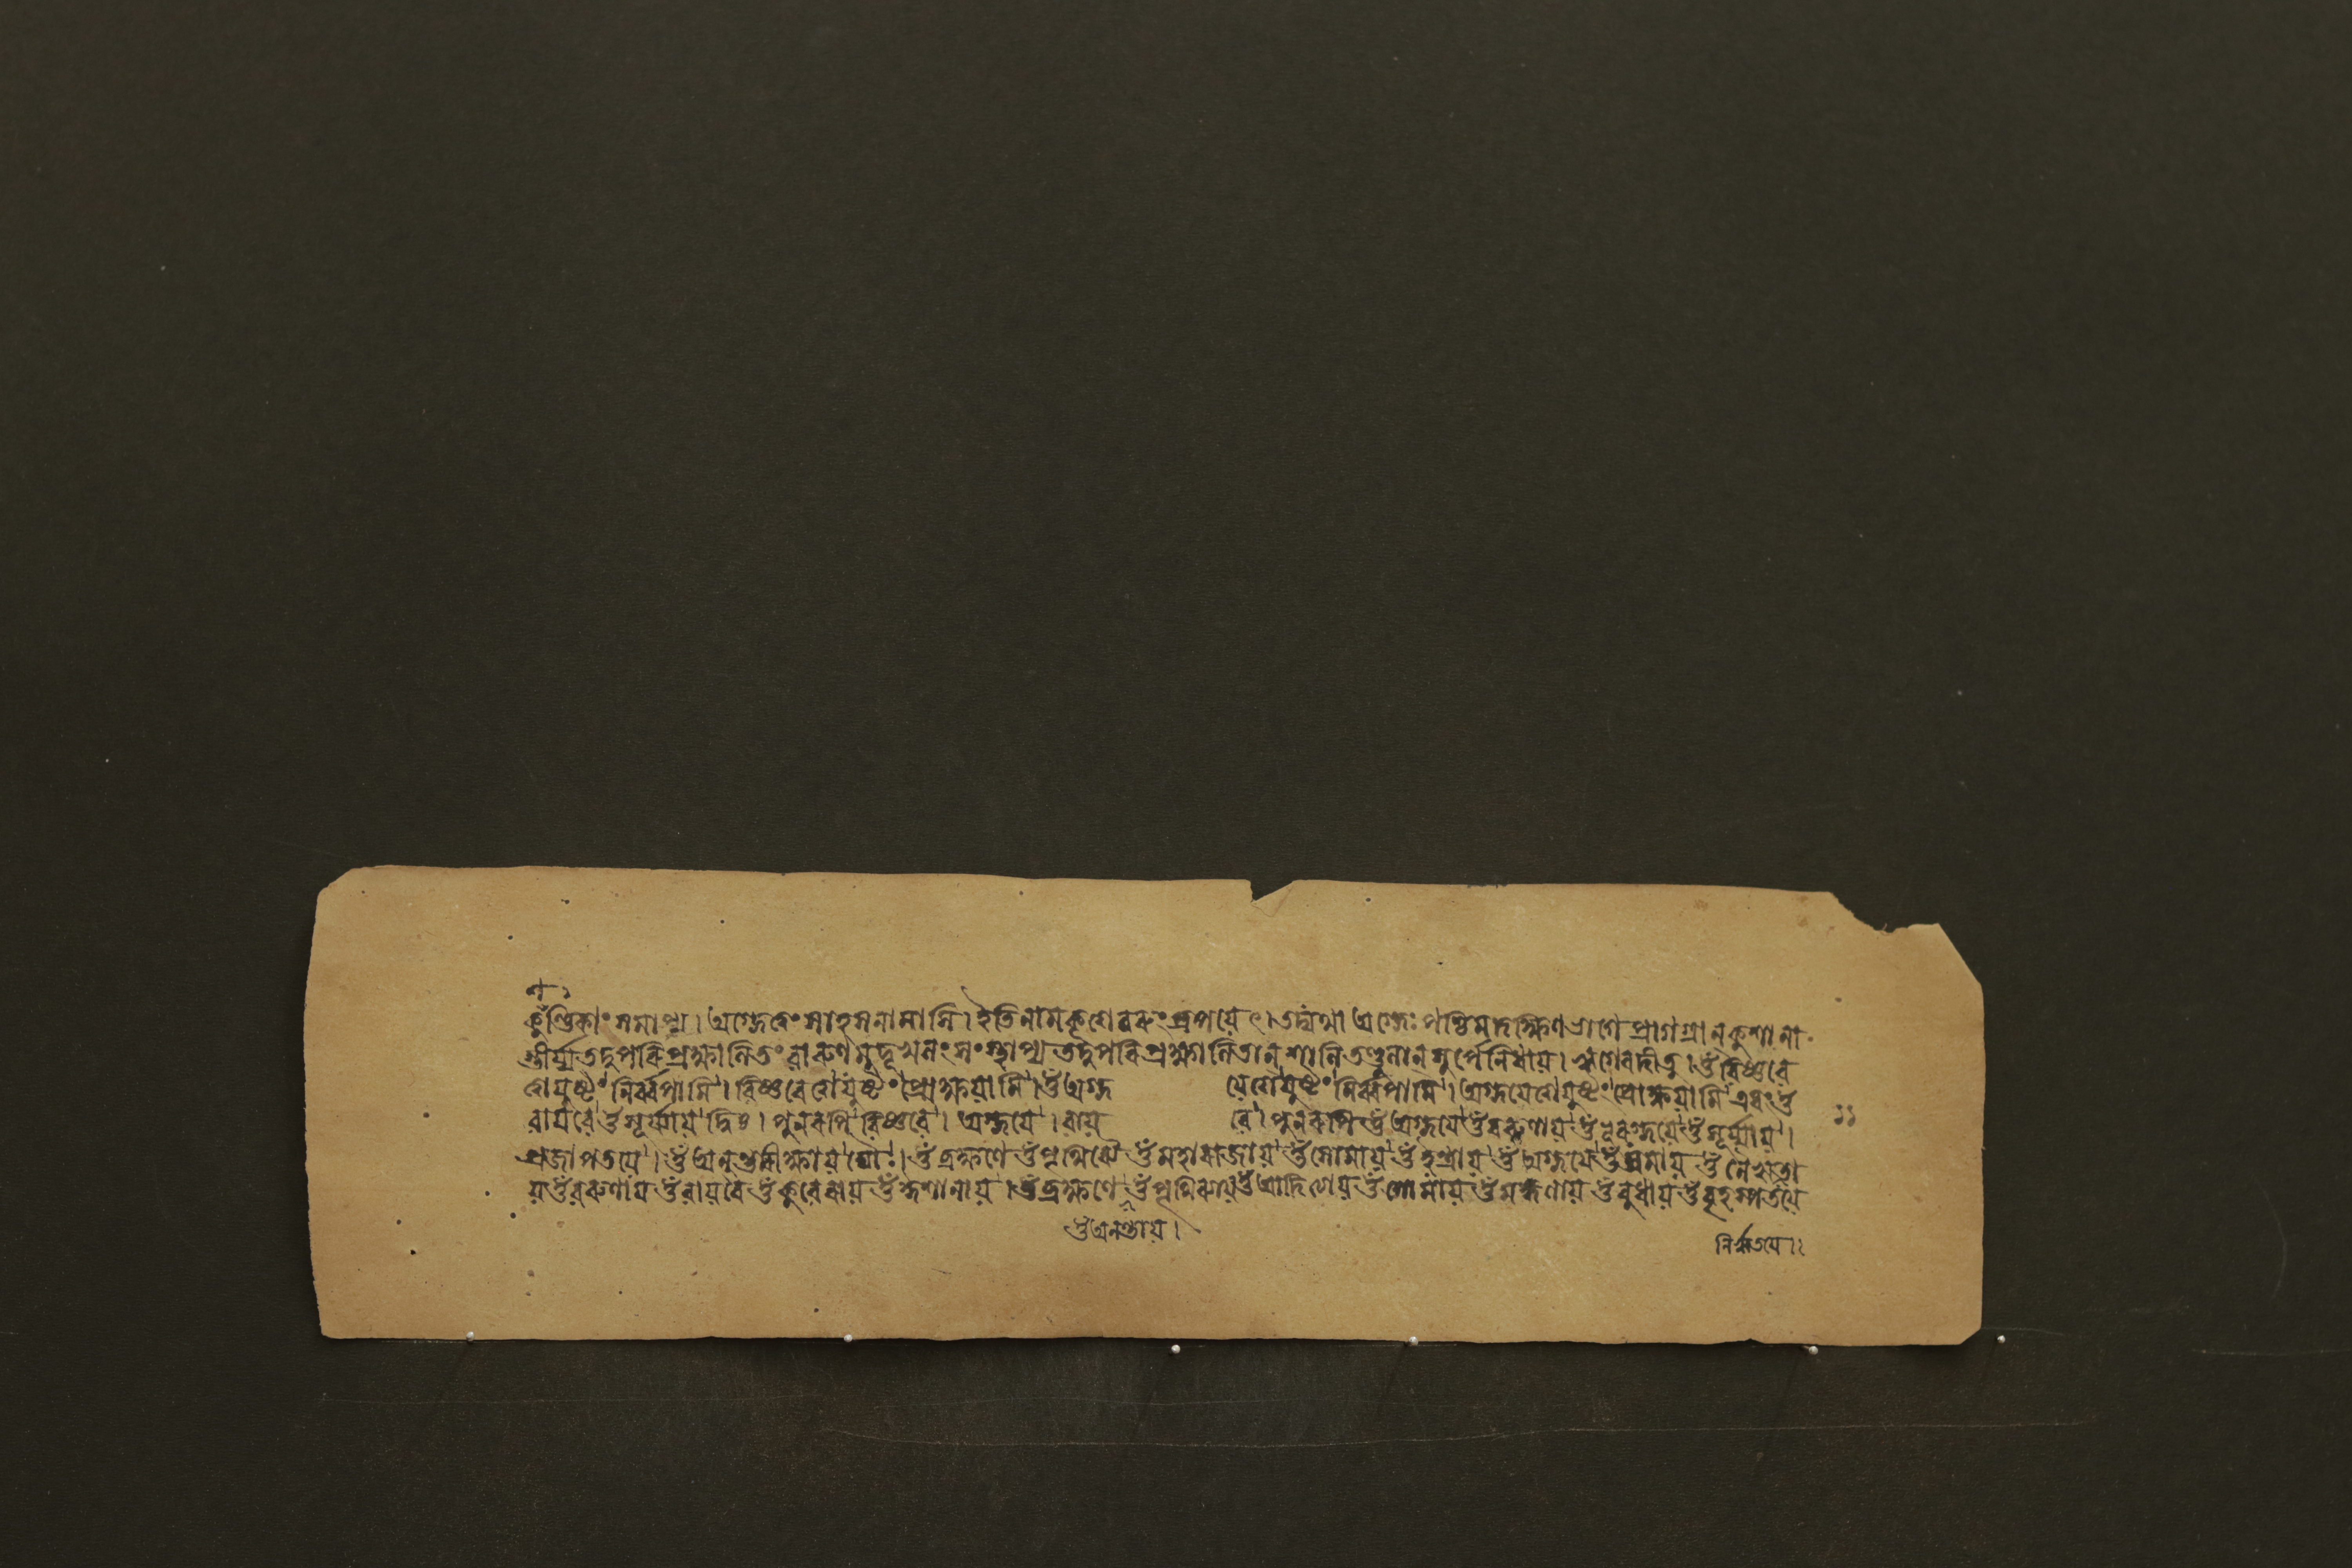 কুশণ্ডিকাং সমাপ্য । অগ্নেত্বং সাহসনামাসি । ইতি নাম কৃত্বা চরুং শ্রপয়েৎ । তদ্যথা অগ্নেঃ পশ্চিমদক্ষিণভাগে প্রাগগ্রান্ কুশানা
স্তীর্য্য তদুপরি প্রক্ষালিতং বারুণমুদূখলং সংস্থাপ্য তদুপরি প্রক্ষালিতান্ তণ্ডুলান্ সূর্পে নিধায় । ওঁ বিষ্ণবে
ত্বা যুষ্টং নির্ব্বপামি । বিষ্ণবে ত্বা যুষ্টং প্রোক্ষয়ামি । ওঁ অগ্ন য়ে ত্বা যুষ্টং নির্ব্বপামি । অগ্নয়ে ত্বা যুষ্টং প্রোক্ষয়ামি এবং ওঁ
বায়বে ওঁ সূর্য্যায় । পুনরপি বিষ্ণবে । অগ্নয়ে । বায় বে । পুনরপি ওঁ অগ্নয়ে ওঁ বরুণায় ওঁ অগ্নয়ে ওঁ সূর্য্যায় ।
প্রজাপতয়ে । ওঁ অন্তরীক্ষায় দ্যৌঃ । ওঁ ব্রহ্মণে ওঁ পৃথিব্যৈ ওঁ মহারাজায় ওঁ সোমায় ওঁ ইন্দ্রায় ওঁ অগ্নয়ে ওঁ যমায় ওঁ নৈঋতা
য় ওঁ বরুণায় ওঁ বায়বে ওঁ কুবেরায় ওঁ ঈশানায় । ওঁ ব্রহ্মণে ওঁ আদিত্যায় ওঁ সোমায় ওঁ মঙ্গলায় ওঁ বুধায় ওঁ বৃহস্পতয়ে
ওঁ অনন্তায় ।
নিঋতয়ে ।
১১